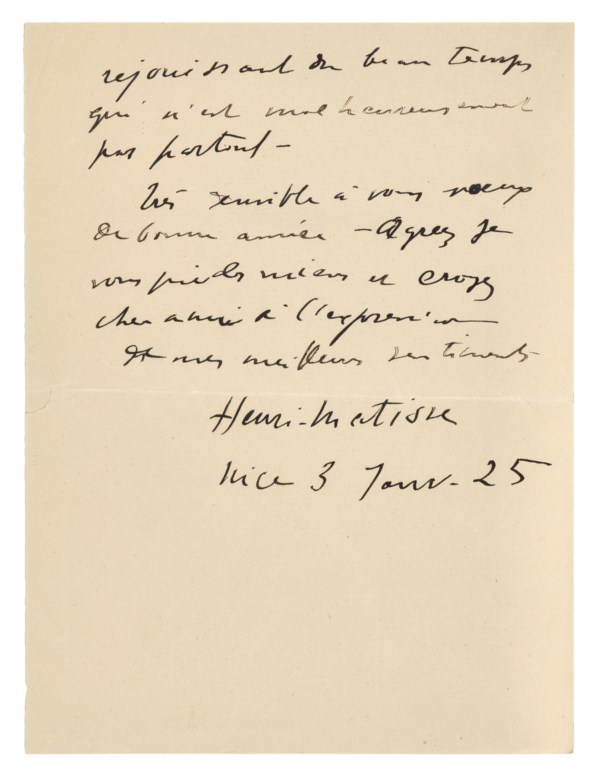 rejouissant du beau temps
qui n'est malheureusement
pas partout –
Très sensible à vous voeux
de bonne année – Agréez je
vous prie les miens et croyez
cher ami à l'expression
de mes meilleurs sentiments
Henri-Matisse
Nice 3 Janv. 25